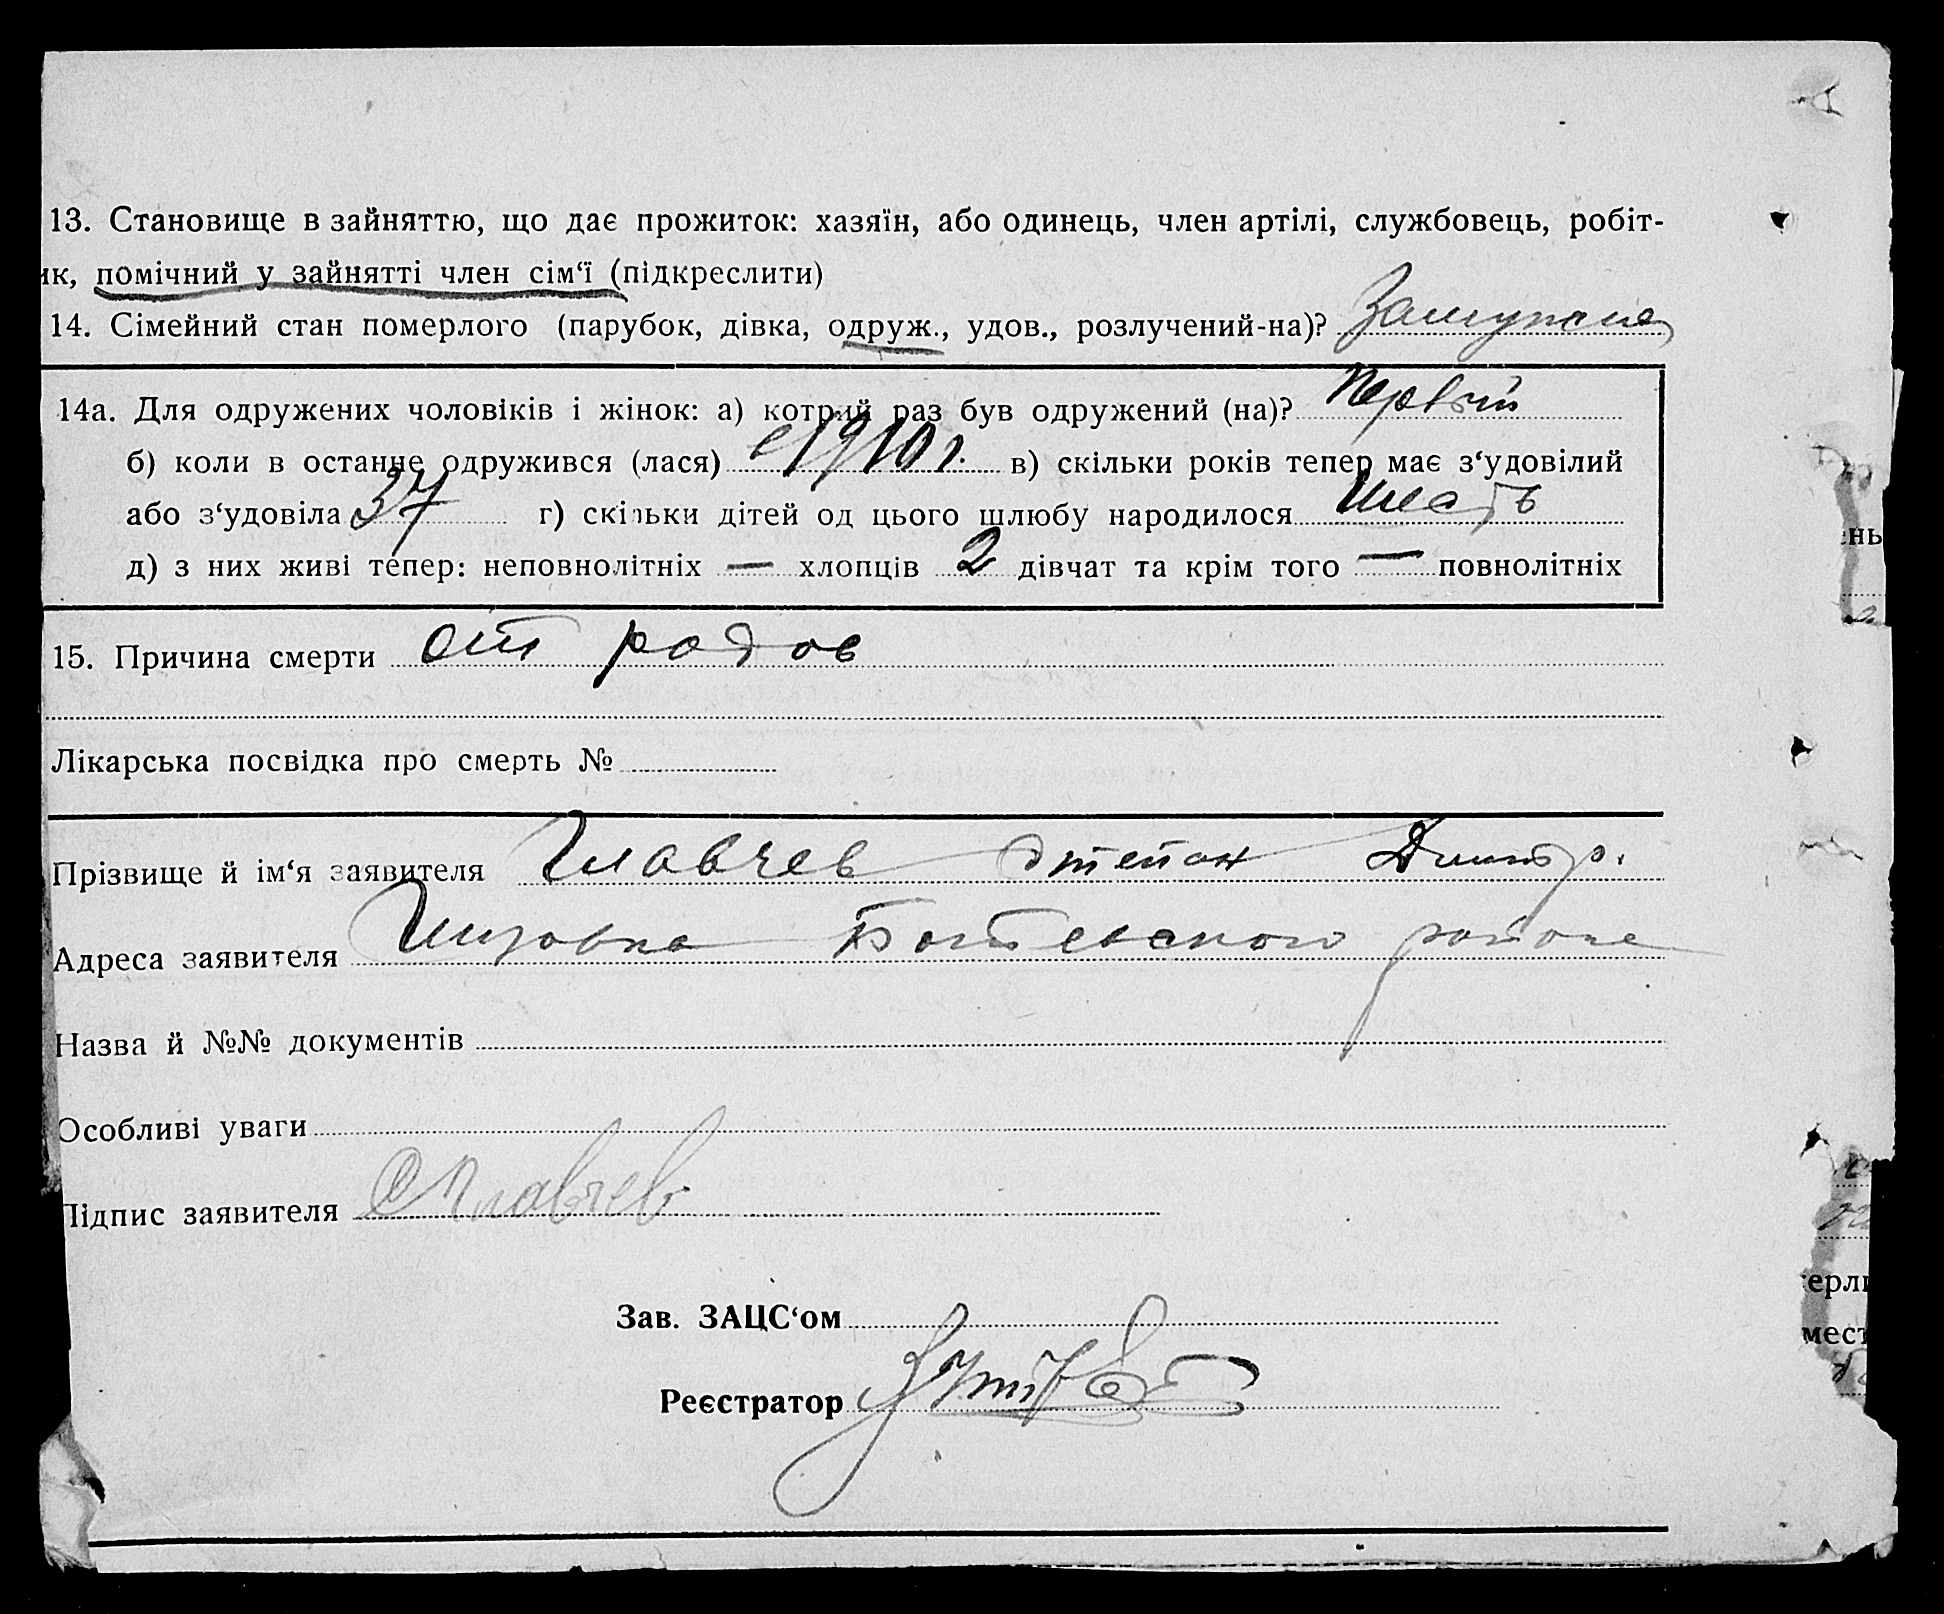 13. Становище в зайняттю, що дає прожиток: хазяїн, або одинець, член артілі, службовець, робіт-
ик, помічний у зайнятті член сім‘ї (підкреслити)
14. Сімейний стан померлого (парубок, дівка, одруж., удов., розлучений-на)? Замужние
14а. Для одружених чоловіків і жінок: а) котрий раз був одружений (на)? Первый
б) коли в останне одружився (лася) с 1910 г. в) скільки років тепер має з‘удовілий
або з‘удовіла 37 г) скільки дітей од цього шлюбу народилося Шесть
д) з них живі тепер: неповнолітніх — хлопців 2 дівчат та крім того — повнолітніх
15. Причина смерти от родов
Лікарська посвідка про смерть №
Прізвище й ім‘я заявителя Главчев Степан Дмитр.
Адреса заявителя Ботевского района
Назва й №№ документів
Особливі уваги
Підпис заявителя С Главчев
Зав. ЗАЦС‘ом
Реєстратор
ень
ерли
мест